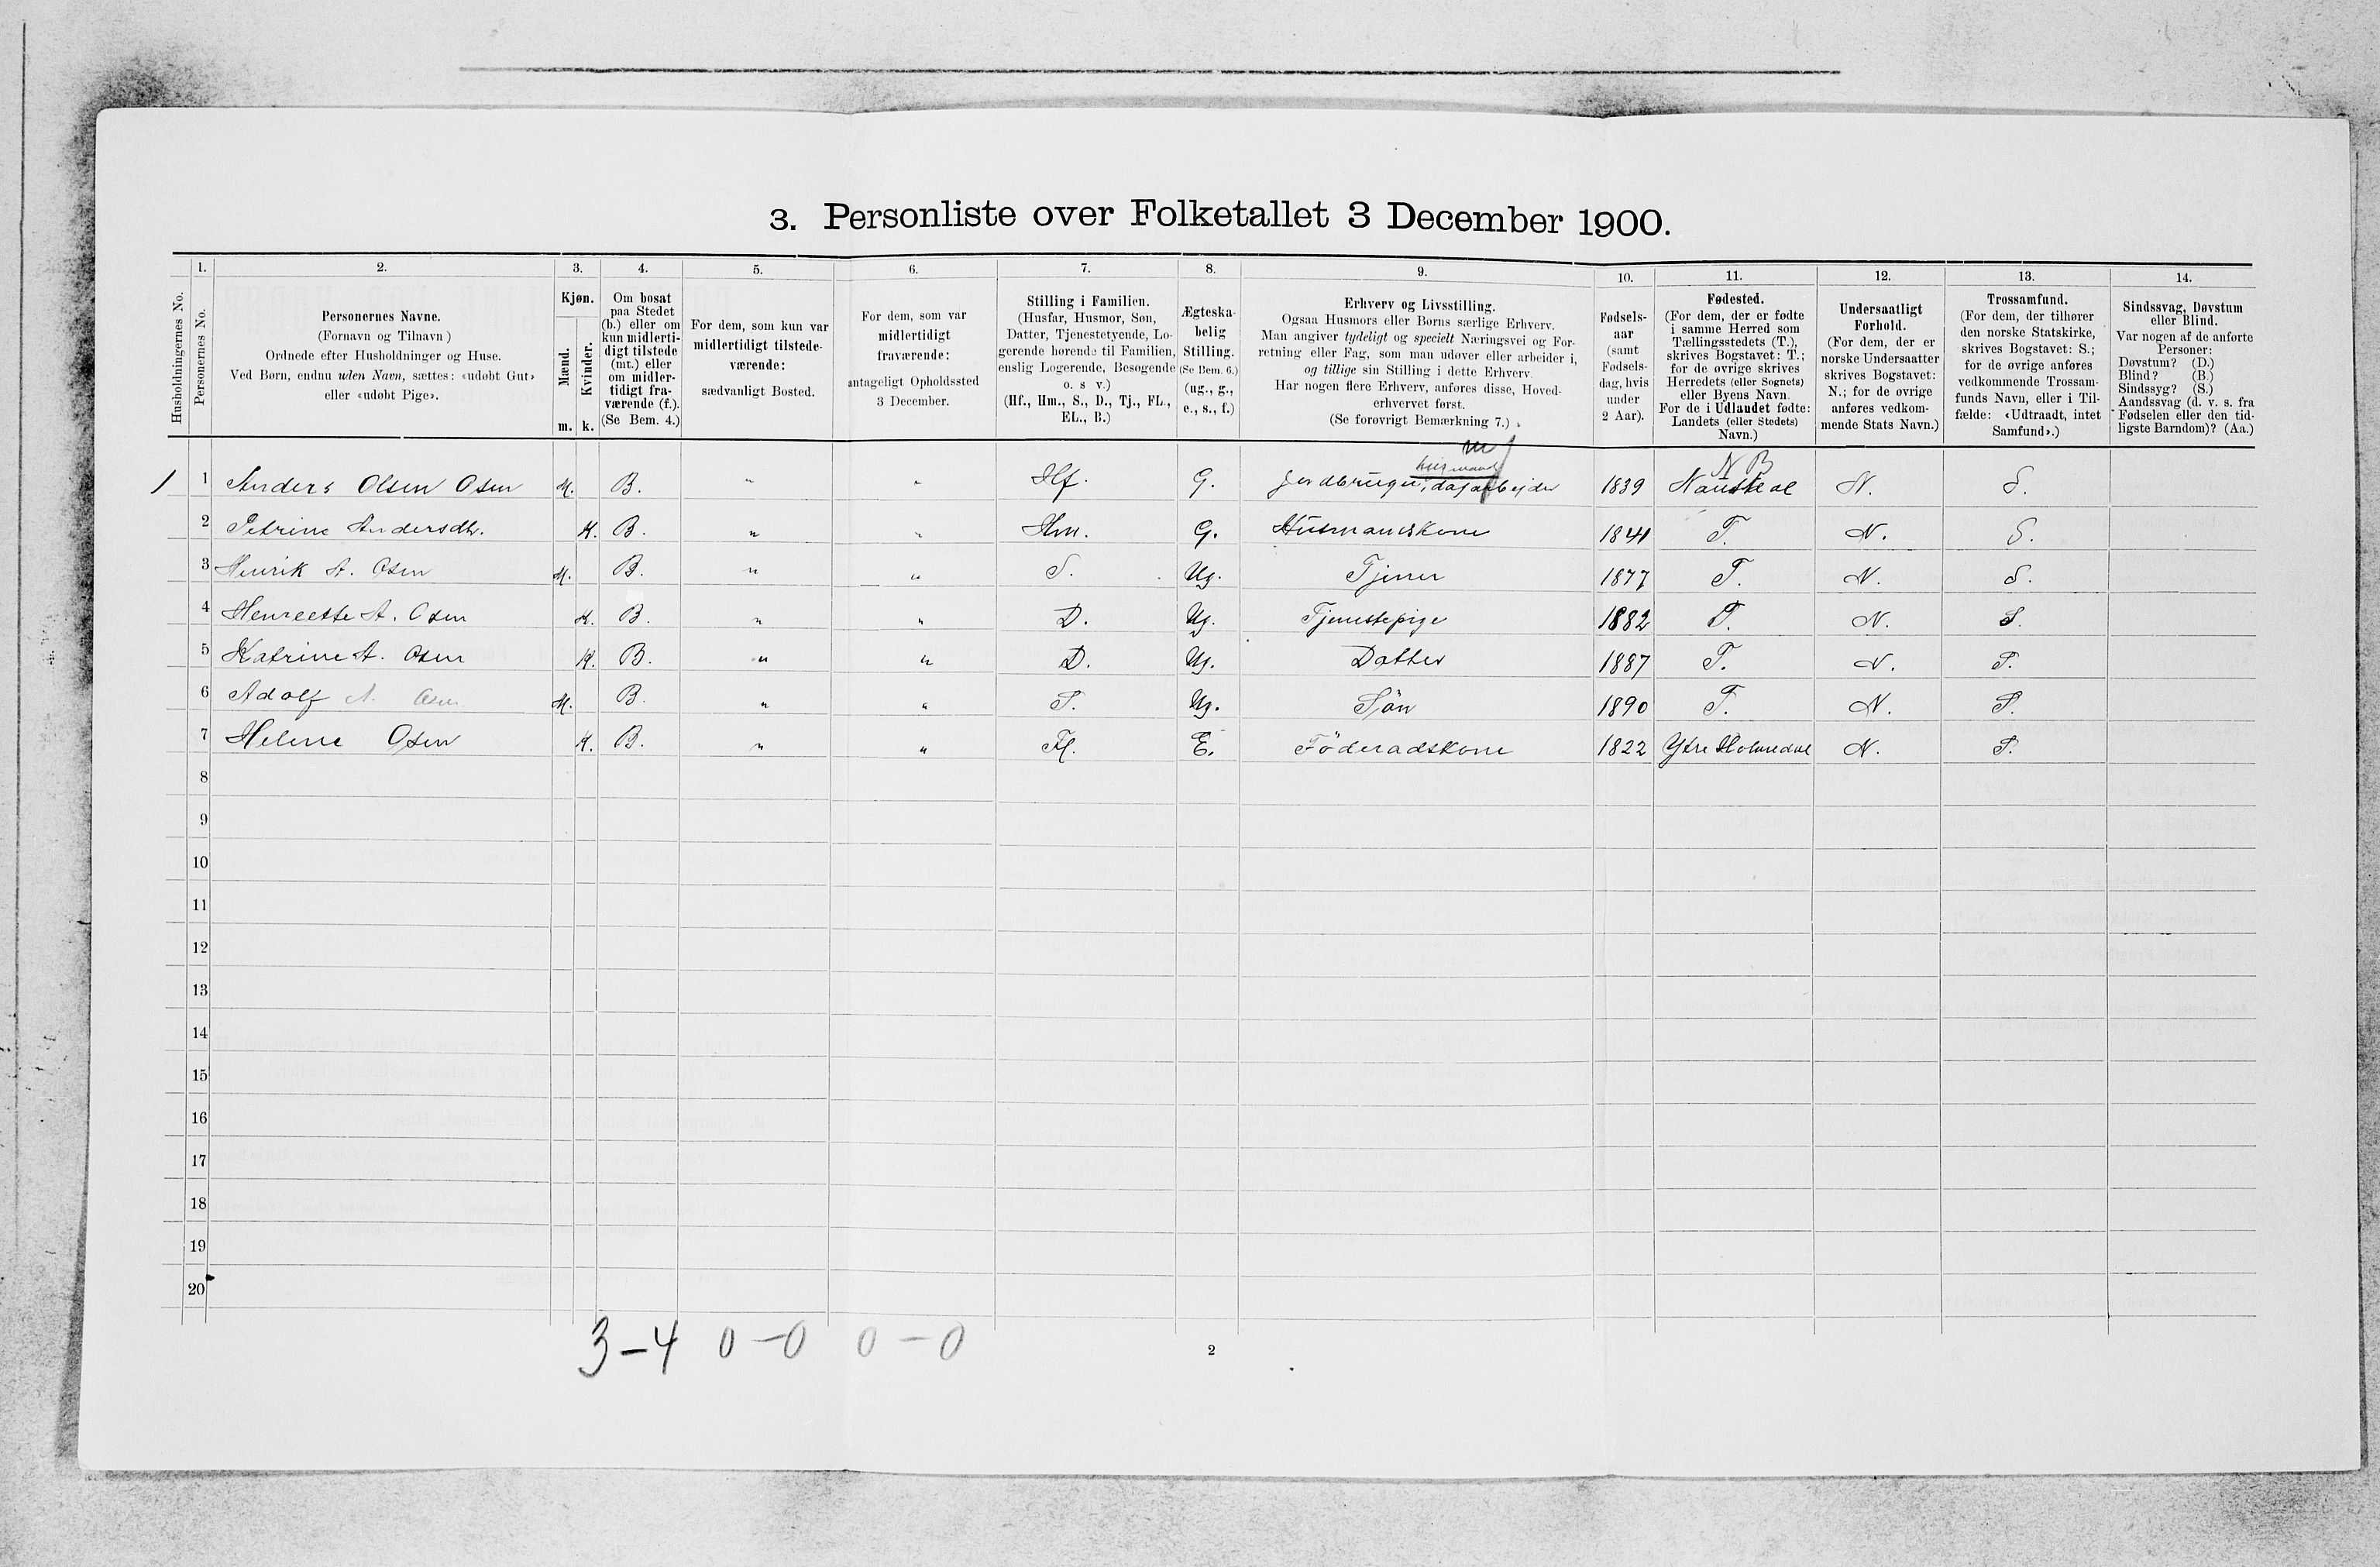 3. Personliste over Folketallet 3 December 1900.
1. 2. 3. 4. 5. 6. 7. 8. 9. 10. 11. 12. 13. 14.
Husholdningernes No.
Personernes No.
Personernes Navne.
(Fornavn og Tilnavn)
Ordnede efter Husholdninger og Huse.
Ved Børn, endnu uden Navn, sættes: «udøbt Gut»
eller «udøbt Pige».
Kjøn.
Mænd.
Kvinder.
m. k.
Om bosat
paa Stedet
(b.) eller om
kun midlerti-
digt tilstede
(mt.) eller
om midler-
tidigt fra-
værende (f.).
(Se Bem. 4.)
For dem, som kun var
midlertidigt tilstede-
værende:
sædvanligt Bosted.
For dem, som var
midlertidigt
fraværende:
antageligt Opholdssted
3 December.
Stilling i Familien.
(Husfar, Husmor, Søn,
Datter, Tjenestetyende, Lo-
gerende hørende til Familien,
enslig Logerende, Besøgende
o. s v.)
(Hf., Hm., S., D., Tj., FL.,
EL., B.)
Ægteska-
belig
Stilling.
(Se Bem. 6.)
(ug., g.,
e., s., f.)
Erhverv og Livsstilling.
Ogsaa Husmors eller Børns særlige Erhverv.
Man angiver tydeligt og specielt Næringsvei og For-
retning eller Fag, som man udøver eller arbeider i,
og tillige sin Stilling i dette Erhverv.
Har nogen flere Erhverv, anføres disse, Hoved-
erhvervet først.
(Se forøvrigt Bemærkning 7.)
Fødsels-
aar
(samt
Fødsels-
dag, hvis
under
2 Aar).
Fødested.
(For dem, der er fødte
i samme Herred som
Tællingsstedets (T.),
skrives Bogstavet: T.;
for de øvrige skrives
Herredets (eller Sognets)
eller Byens Navn.
For de i Udlandet fødte:
Landets (eller Stedets)
Navn.)
Undersaatligt
Forhold.
(For dem, der er
norske Undersaatter
skrives Bogstavet:
N.; for de øvrige
anføres vedkom-
mende Stats Navn.)
Trossamfund.
(For dem, der tilhører
den norske Statskirke,
skrives Bogstavet: S.;
for de øvrige anføres
vedkommende Trossam-
funds Navn, eller i Til-
fælde: «Udtraadt, intet
Samfund».)
Sindssvag, Døvstum
eller Blind.
Var nogen af de anførte
Personer:
Døvstum? (D.)
Blind? (B.)
Sindssyg? (S.)
Aandssvag (d. v. s. fra
Fødselen eller den tid-
ligste Barndom)? (Aa.)
husmand N B
1 1 Anders Olsen Osen M. B. " " Hf. G. Jordbruger, dagarbejder 1839 Naustdal N. S.
2 Petrine Andersdtr. K. B. " " Hm. G. Husmandskone 1841 T. N. S.
3 Henrik A. Osen M. B. " " S. Ug. Tjener 1877 T. N. S.
4 Henreette A. Osen K. B. " " D. Ug. Tjenstepige 1882 T. N. S.
5 Katrine A. Osen K. B. " " D. Ug. Datter 1887 T. N. S.
6 Adolf A. Osen M. B. " " S. Ug. Sön 1890 T. N. S.
7 Helene Osen K. B. " " Fl. E. Föderadskone 1822 Ytre Holmedal N. S.
8
9
10
11
12
13
14
15
16
17
18
19
20
3–4 0–0 0–0
2